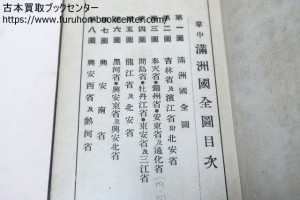 古本買取ブックセンター
https://www.furuhon-bookcenter.com/
掌中 滿洲國全圖目次
第一圖 滿洲國全圖
第二圖 吉林省及濱江省 附北安省
第三圖 奉天省●錦州省●安東省及通化省
第四圖 間島省●牡丹江省●東安省及三江省
第五圖 龍江省及北安省
第六圖 黑河省●興安東省及興安北省
第七圖 興安南省
第八圖 興安西省及熱河省